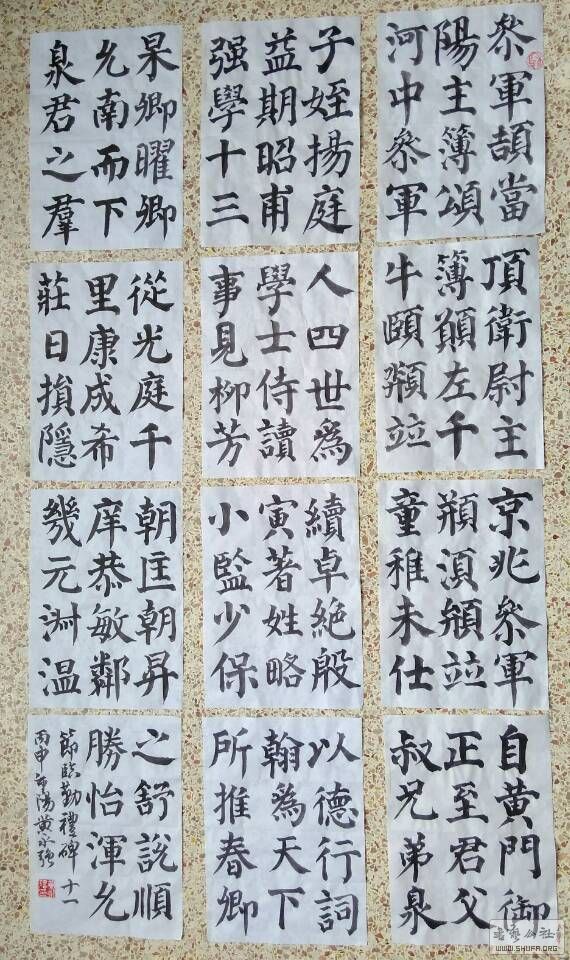 叅軍頡當
陽主簿頌
河中叅軍
頂衛尉主
簿願左千
牛頤竝
京兆叅軍
湏竝
童稚未仕
自黄門御
正至君父
叔兄弟泉
子姪揚庭
益期昭甫
强學十三
人四世為
學士侍讀
事見柳芳
續卓絕殷
寅著姓略
小監少保
以德行詞
翰為天下
所推春卿
杲卿曜卿
允南而下
泉君之羣
從光庭千
里康成希
莊日損隱
朝匡朝昇
庠恭敏鄰
幾元淵温
之舒說順
勝怡渾允
節臨勤禮碑 十一
丙申 陽黄永强
書藝公社
WWW.SHUFA.ORG